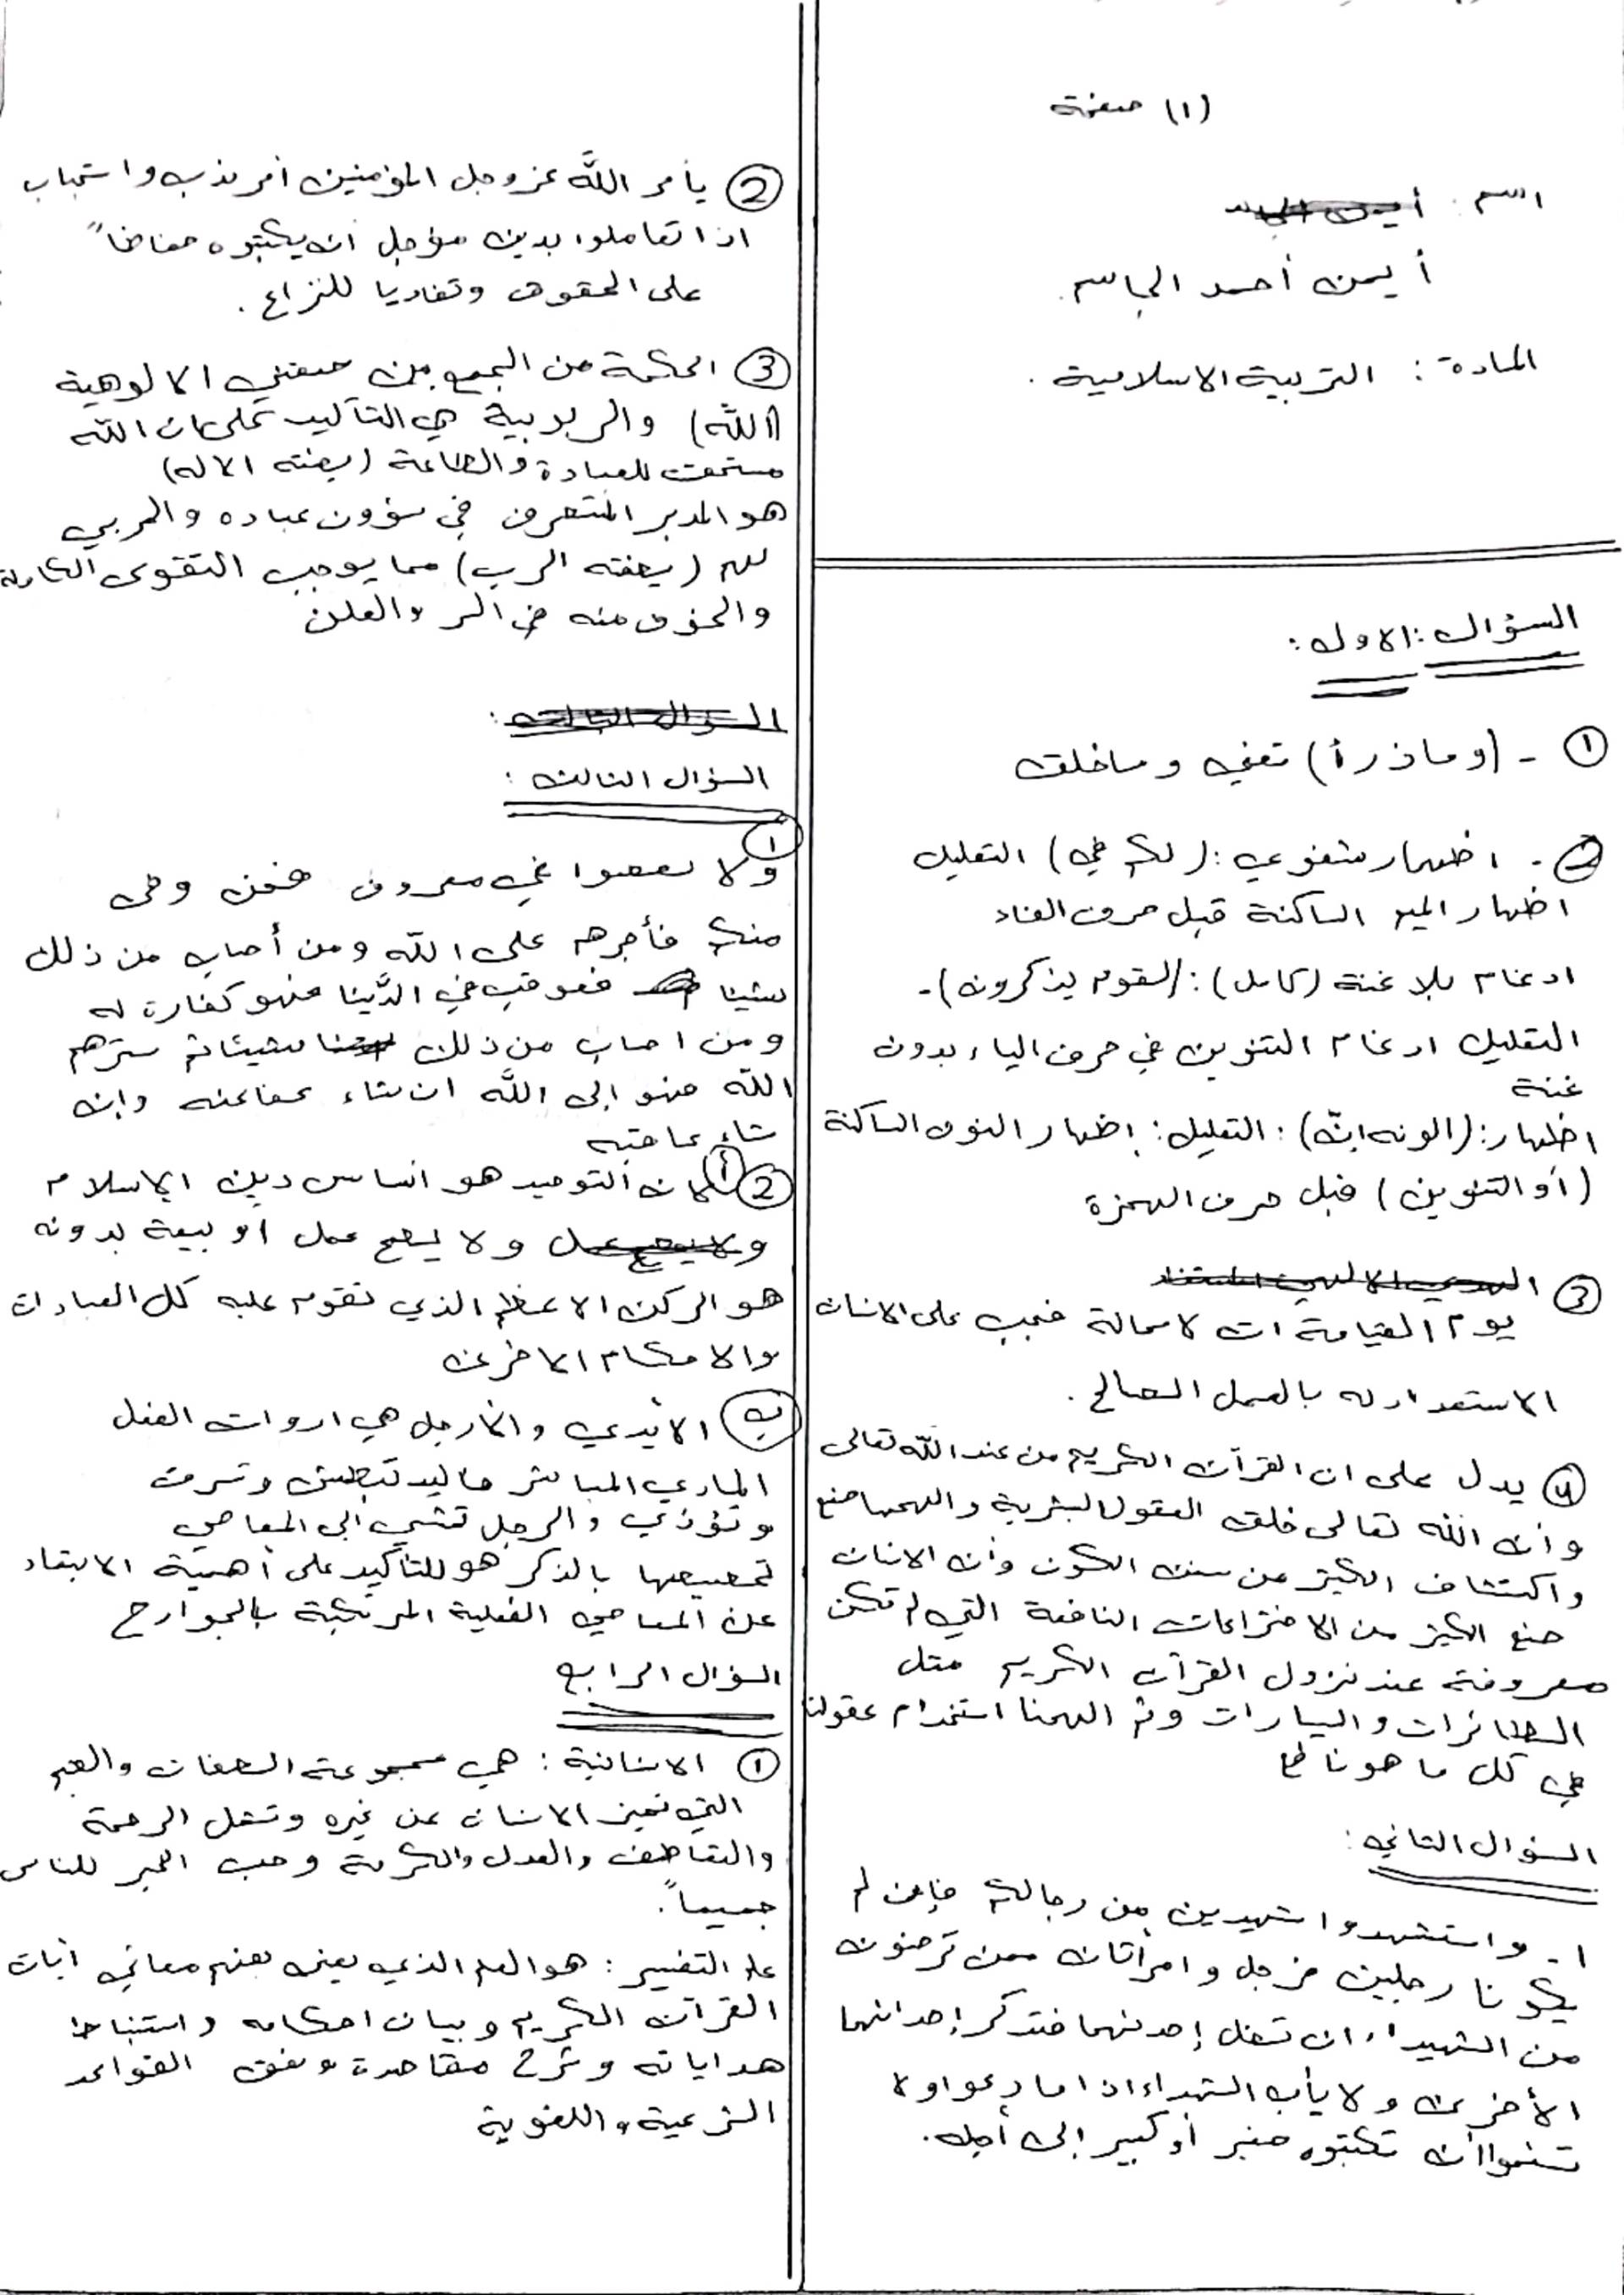 (١) صفحة
اسم:
أيمن أحمد الجاسم.
المادة: التربية الاسلامية.
السؤال: الاول:
① - (وما ذرأ) تعني وما خلق
② - اظهار شفوي: (لكم في) التعليل
اظهار الميم الساكنة قبل حرف الفاء
ادغام بلا غنة (كامل): (لقوم يذكرون).
التعليل ادغام التنوين في حرف الياء بدون
غنة
اظهار: (الونه ان): التعليل: إظهار النون الساكنة
(أو التنوين) قبل حرف الهمزة
③
يوم القيامة ات لا محالة فيجب على الانسان
الاستعداد له بالعمل الصالح.
④ يدل على ان القرآن الكريم من عند الله تعالى
وأن الله تعالى خلق العقول البشرية والهمها صنع
واكتشاف الكثير من سنن الكون وأن الانسان
صنع الكثير من الاختراعات النافعة التي لم تكن
معروفة عند نزول القرآن الكريم مثل
الطائرات والسيارات وتم الهمنا استخدام عقولنا
في كل ما هو نافع
السؤال الثاني:
١- واستشهدوا شهيدين من رجالكم فإن لم
يكونا رجلين فرجل وامرأتان ممن ترضون
من الشهداء ان تضل إحدىهما فتذكر إحداهما
الأخرى ولا يأب الشهداء اذا ما دعوا ولا
تسئموا أن تكتبوه صغير أو كبير إلى أجله.
② يأمر الله عز وجل المؤمنين أمر ندب واستحباب
اذا تعاملوا بدين مؤجل ان يكتبوه حفاضاً
على الحقوق وتفاديا للنزاع.
③ الحكمة من الجمع بين صفتي الالوهية
(الله) والربوبية هي التأكيد على ان الله
مستحق للعبادة والطاعة (بصفته الاله)
هو المدبر المتصرف في شؤون عباده والمربي
لهم (بصفته الرب) مما يوجب التقوى الكاملة
والخوف منه في السر والعلن
السؤال الثالث:
السؤال الثالث:
① ولا تعصوا في معروف فمن وفى
منكم فأجرهم على الله ومن أصاب من ذلك
شيئا فعوقب في الدُّنيا فهو كفارة له
ومن اصاب من ذلك شيئا ثم سترهم
الله فهو إلى الله ان شاء عفا عنه وإن
شاء عاقبه
② أ لان التوحيد هو اساس دين الإسلام
ولا يصح عمل او بيعة بدونه
هو الركن الاعظم الذي تقوم عليه كل العبادات
والاحكام الاخرى
ب الأيدي والأرجل هي ادوات الفعل
المادي المباشر فاليد تبطش وتسرق
وتؤذي والرجل تمشي إلى المعاصي
تخصيصها بالذكر هو للتأكيد على أهمية الابتعاد
عن المعاصي الفعلية المرتكبة بالجوارح
السؤال الرابع
① الانسانية: هي مجموعة الصفات والقيم
التي تميز الانسان عن غيره وتشمل الرحمة
والتعاطف والعدل والكرمة وحب الخير للناس
جميعاً.
علم التفسير: هو العلم الذي يعنى بفهم معاني آيات
القرآن الكريم وبيان احكامه واستنباط
هداياته وشرح مقاصدة وفق القواعد
الشرعية واللغوية